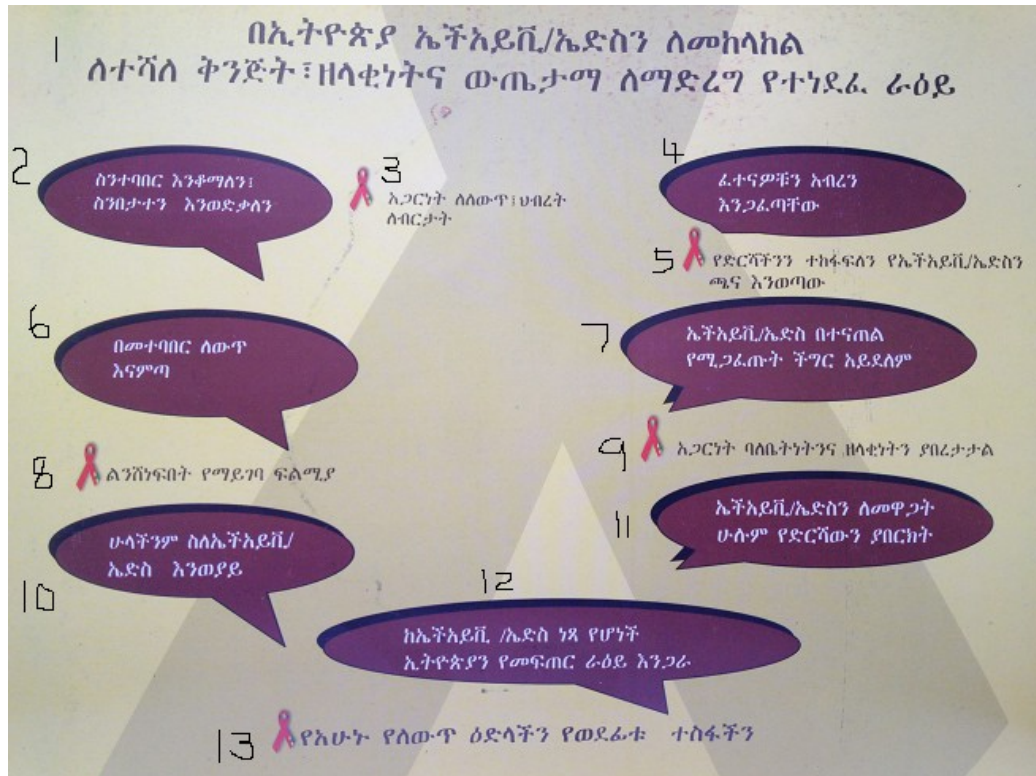 1
በኢትዮጵያ ኤችአይቪ/ኤድስን ለመከላከል
ለተሻለ ቅንጅት፣ዘላቂነትና ውጤታማ ለማድረግ የተነደፈ ራዕይ
2
ስንተባበር እንቆማለን፤
ስንበታተን እንወድቃለን
3
አጋርነት ለለውጥ፤ህብረት
ለብርታት
4
ፈተናዎቹን አብረን
እንጋፈጣቸው
5
የድርሻችንን ተከፋፍለን የኤችአይቪ/ኤድስን
ጫና እንወጣው
6
በመተባበር ለውጥ
እናምጣ
7
ኤችአይቪ/ኤድስ በተናጠል
የሚጋፈጡት ችግር አይደለም
8
ልንሸነፍበት የማይገባ ፍልሚያ
9
አጋርነት ባለቤትነትንና ዘላቂነትን ያበረታታል
10
ሁላችንም ስለኤችአይቪ/
ኤድስ እንወያይ
11
ኤችአይቪ/ኤድስን ለመዋጋት
ሁሉም የድርሻውን ያበርክት
12
ከኤችአይቪ /ኤድስ ነጻ የሆነች
ኢትዮጵያን የመፍጠር ራዕይ እንጋራ
13
የአሁኑ የለውጥ ዕድላችን የወደፊቱ ተስፋችን